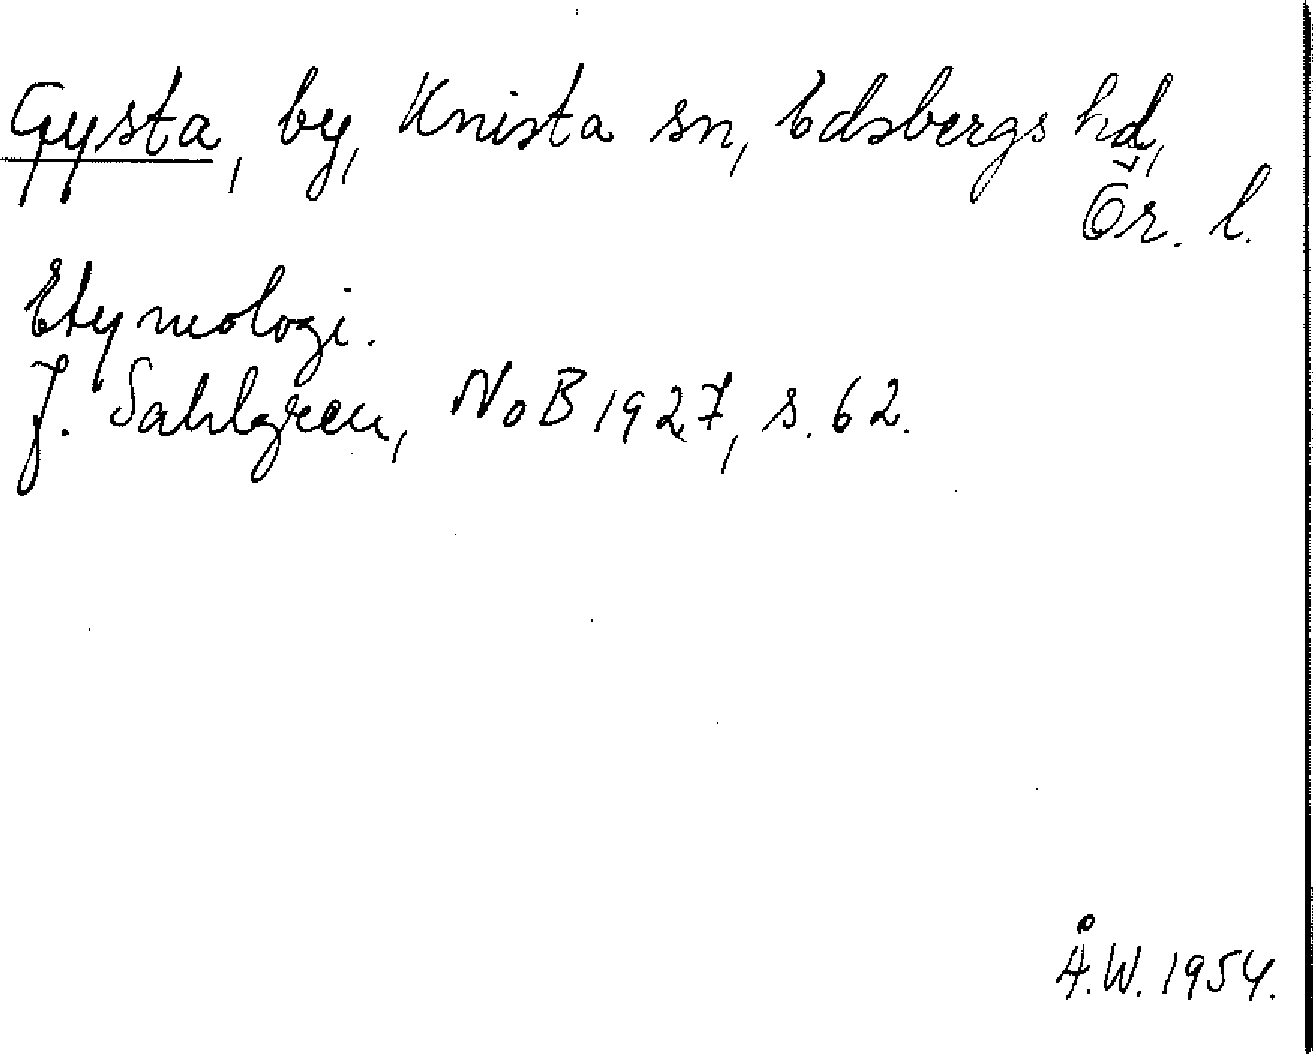 Gysta, by, Knista sn, Edsbergs hd,
Ör. l.
Etymologi.
J. Sahlgren, NoB 1927, s. 62.
Å.W. 1954.